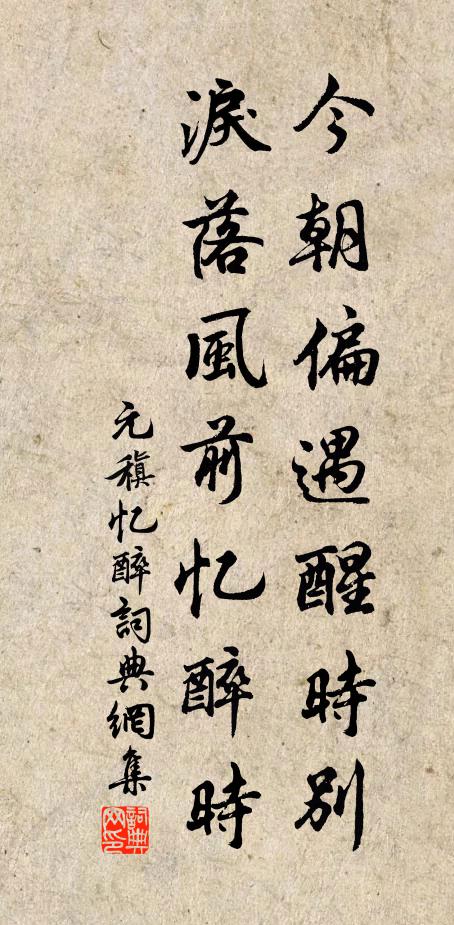 今朝偏遇醒時別
淚落風前忆醉時
元稹忆醉詞典網集
詞典网印